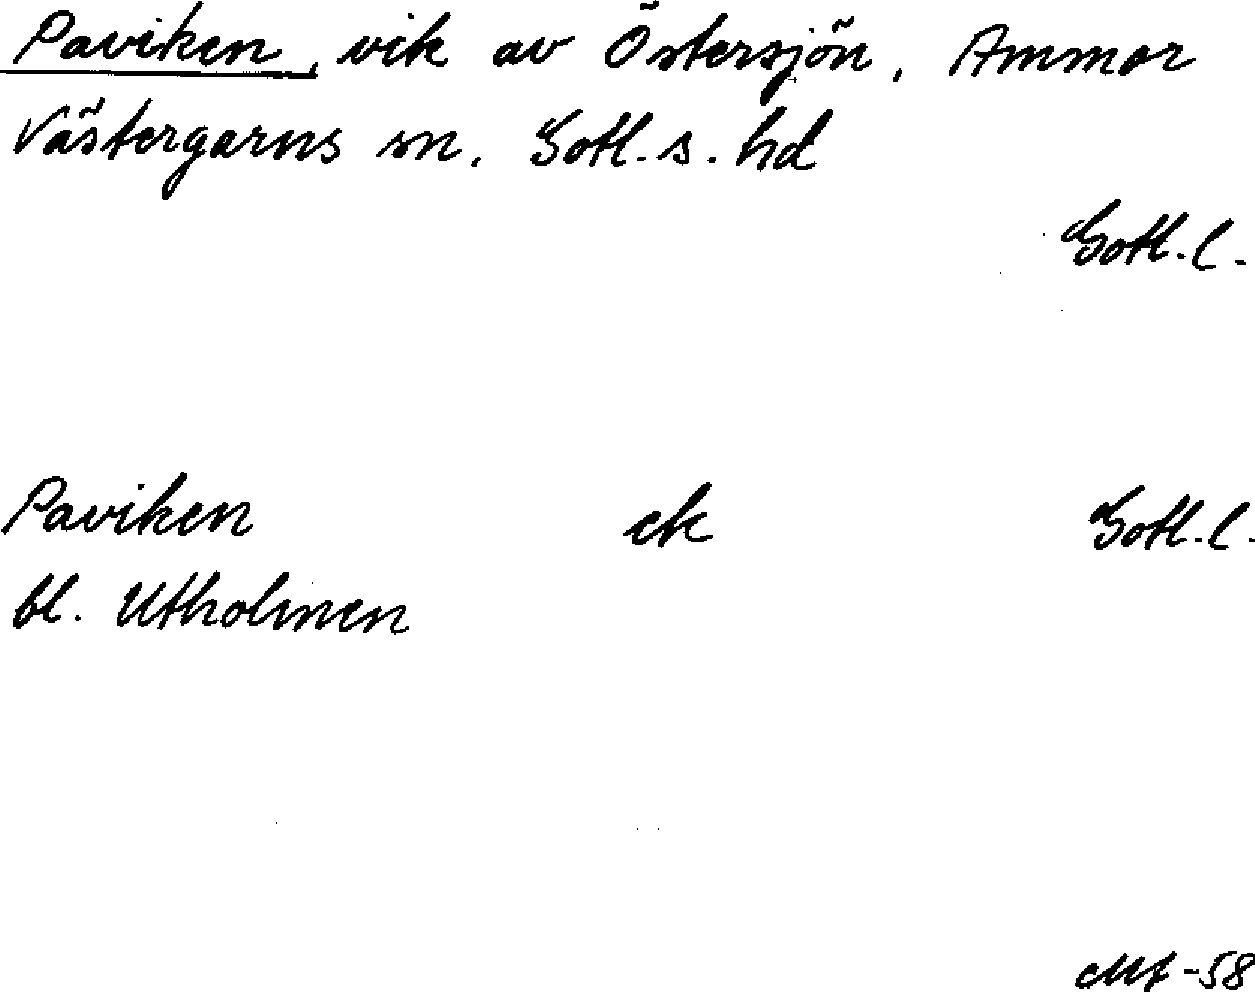 Paviken, vik av Östersjön, Ammor
Västergarns sn. Gotl. s. hd
Gotl. l.
Paviken ek Gotl. l.
bl. Utholmen
-58